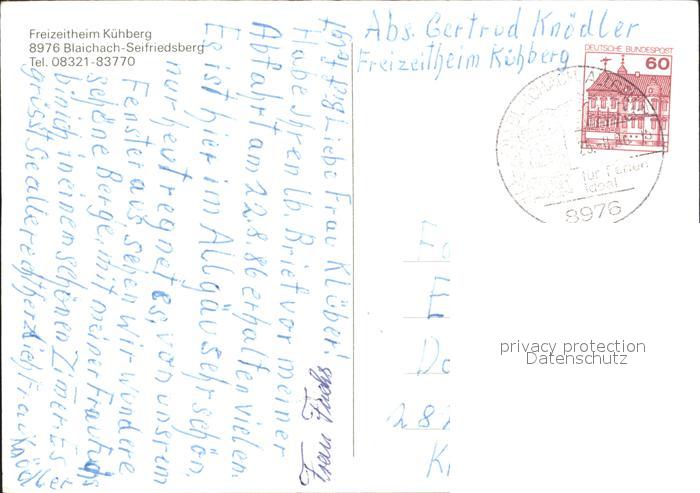 Freizeitheim Kühberg
8976 Blaichach-Seifriedsberg
Tel. 08321-83770
Abs. Gertrud Knödler
Freizeitheim Kühberg
DEUTSCHE BUNDESPOST
60
für Ferien
ideal
8976
Liebe Frau Klüber!
Habe Ihren lb. Brief vor meiner
Abfahrt am 22.8.86 erhalten vielen
Es ist hier im Allgäu sehr schön.
nur heut regnet es, von unserm
Fenster aus, sehen wir wundere
schöne Berge. mit meiner Frau Fuchs
bin ich in einem schönen Zimer. Es
grüsst Sie alle recht herzlich Frau Knödler
Frau Fuchs
Fo
E
Do
282
K
privacy protection
Datenschutz